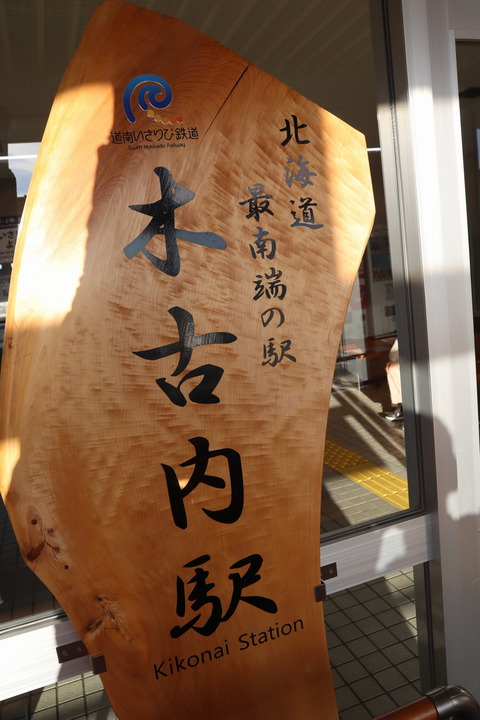 道南いさりび鉄道
South Hokkaido Railway
北海道
最南端の駅
木古内駅
Kikonai Station